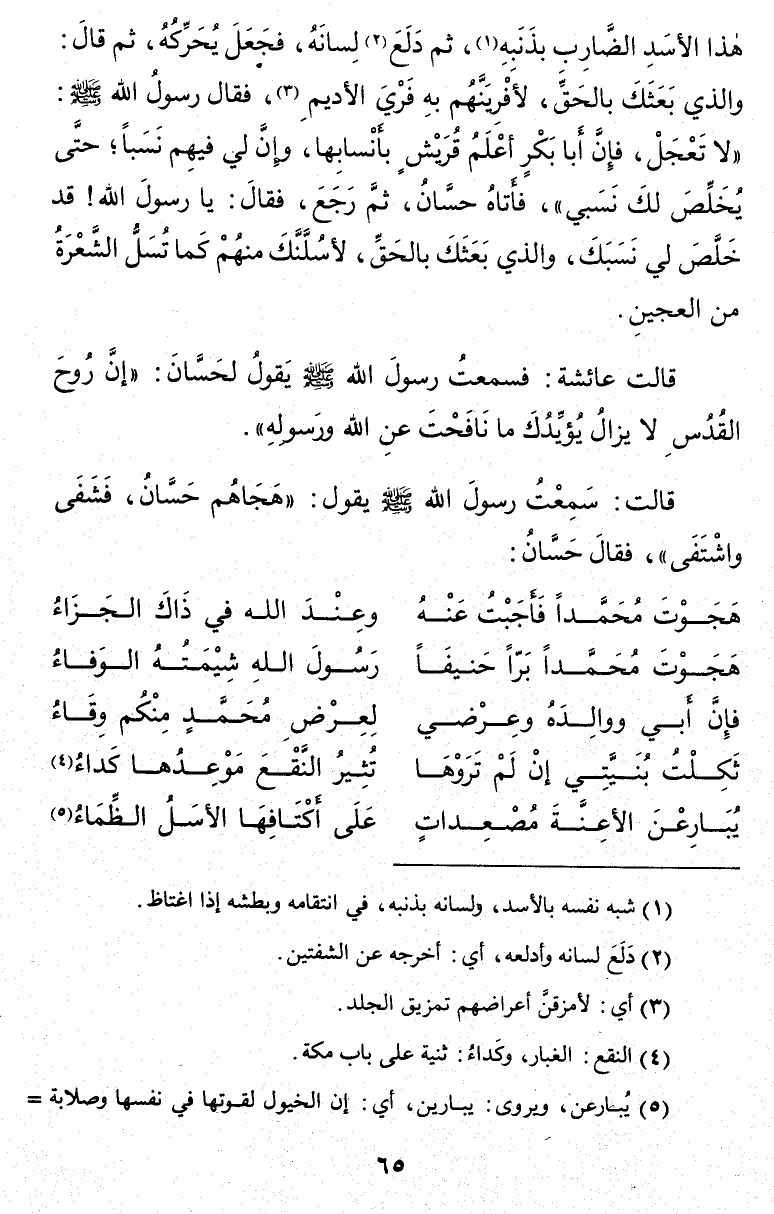 هٰذا الأسَدِ الضَّارِبِ بذَنَبِهِ(١)، ثم دَلَعَ(٢) لِسانَهُ، فجَعَلَ يُحَرِّكُهُ، ثم قالَ:
والذي بَعَثَكَ بالحَقِّ، لأفْرِيَنَّهُم بهِ فَرْيَ الأديمِ(٣)، فقال رسولُ الله ﷺ:
«لا تَعْجَلْ، فإنَّ أبا بَكْرٍ أعْلَمُ قُرَيْشٍ بأَنْسابِها، وإنَّ لي فيهِم نَسَباً؛ حتَّى
يُخَلِّصَ لكَ نَسَبي»، فأتاهُ حسَّانُ، ثمَّ رَجَعَ، فقالَ: يا رسولَ الله! قد
خَلَّصَ لي نَسَبَكَ، والذي بَعَثَكَ بالحَقِّ، لأسُلَّنَّكَ منهُمْ كَما تُسَلُّ الشَّعْرَةُ
من العجينِ.
قالت عائشة: فسمعتُ رسولَ الله ﷺ يَقولُ لحَسَّانَ: «إنَّ رُوحَ
القُدُسِ لا يزالُ يُؤيِّدُكَ ما نَافَحْتَ عنِ الله ورَسولِهِ».
قالت: سَمِعْتُ رسولَ الله ﷺ يقول: «هَجَاهُم حَسَّانُ، فَشَفَى
واشْتَفَى»، فقالَ حَسَّانُ:
هَجَوْتَ مُحَمَّداً فَأَجَبْتُ عَنْهُ وعِنْدَ الله في ذَاكَ الجَزَاءُ
هَجَوْتَ مُحَمَّداً بَرّاً حَنيفَاً رَسُولَ اللهِ شِيْمَتُهُ الوَفَاءُ
فإنَّ أَبي ووالِدَهُ وعِرْضي لِعِرْضِ مُحَمَّدٍ مِنْكُم وِقَاءُ
ثَكِلْتُ بُنَيَّتِي إنْ لَمْ تَرَوْهَا تُثِيرُ النَّقْعَ مَوْعِدُها كَداءُ(٤)
يُبَارِعْنَ الأعِنَّةَ مُصْعِداتٍ عَلَى أَكْتَافِهَا الأسَلُ الظِّمَاءُ(٥)
(١) شبه نفسه بالأسد، ولسانه بذنبه، في انتقامه وبطشه إذا اغتاظ.
(٢) دَلَعَ لسانه وأدلعه، أي: أخرجه عن الشفتين.
(٣) أي: لأمزقنَّ أعراضهم تمزيق الجلد.
(٤) النقع: الغبار، وكَداءُ: ثنية على باب مكة.
(٥) يُبارعن، ويروى: يبارين، أي: إن الخيول لقوتها في نفسها وصلابة =
٦٥